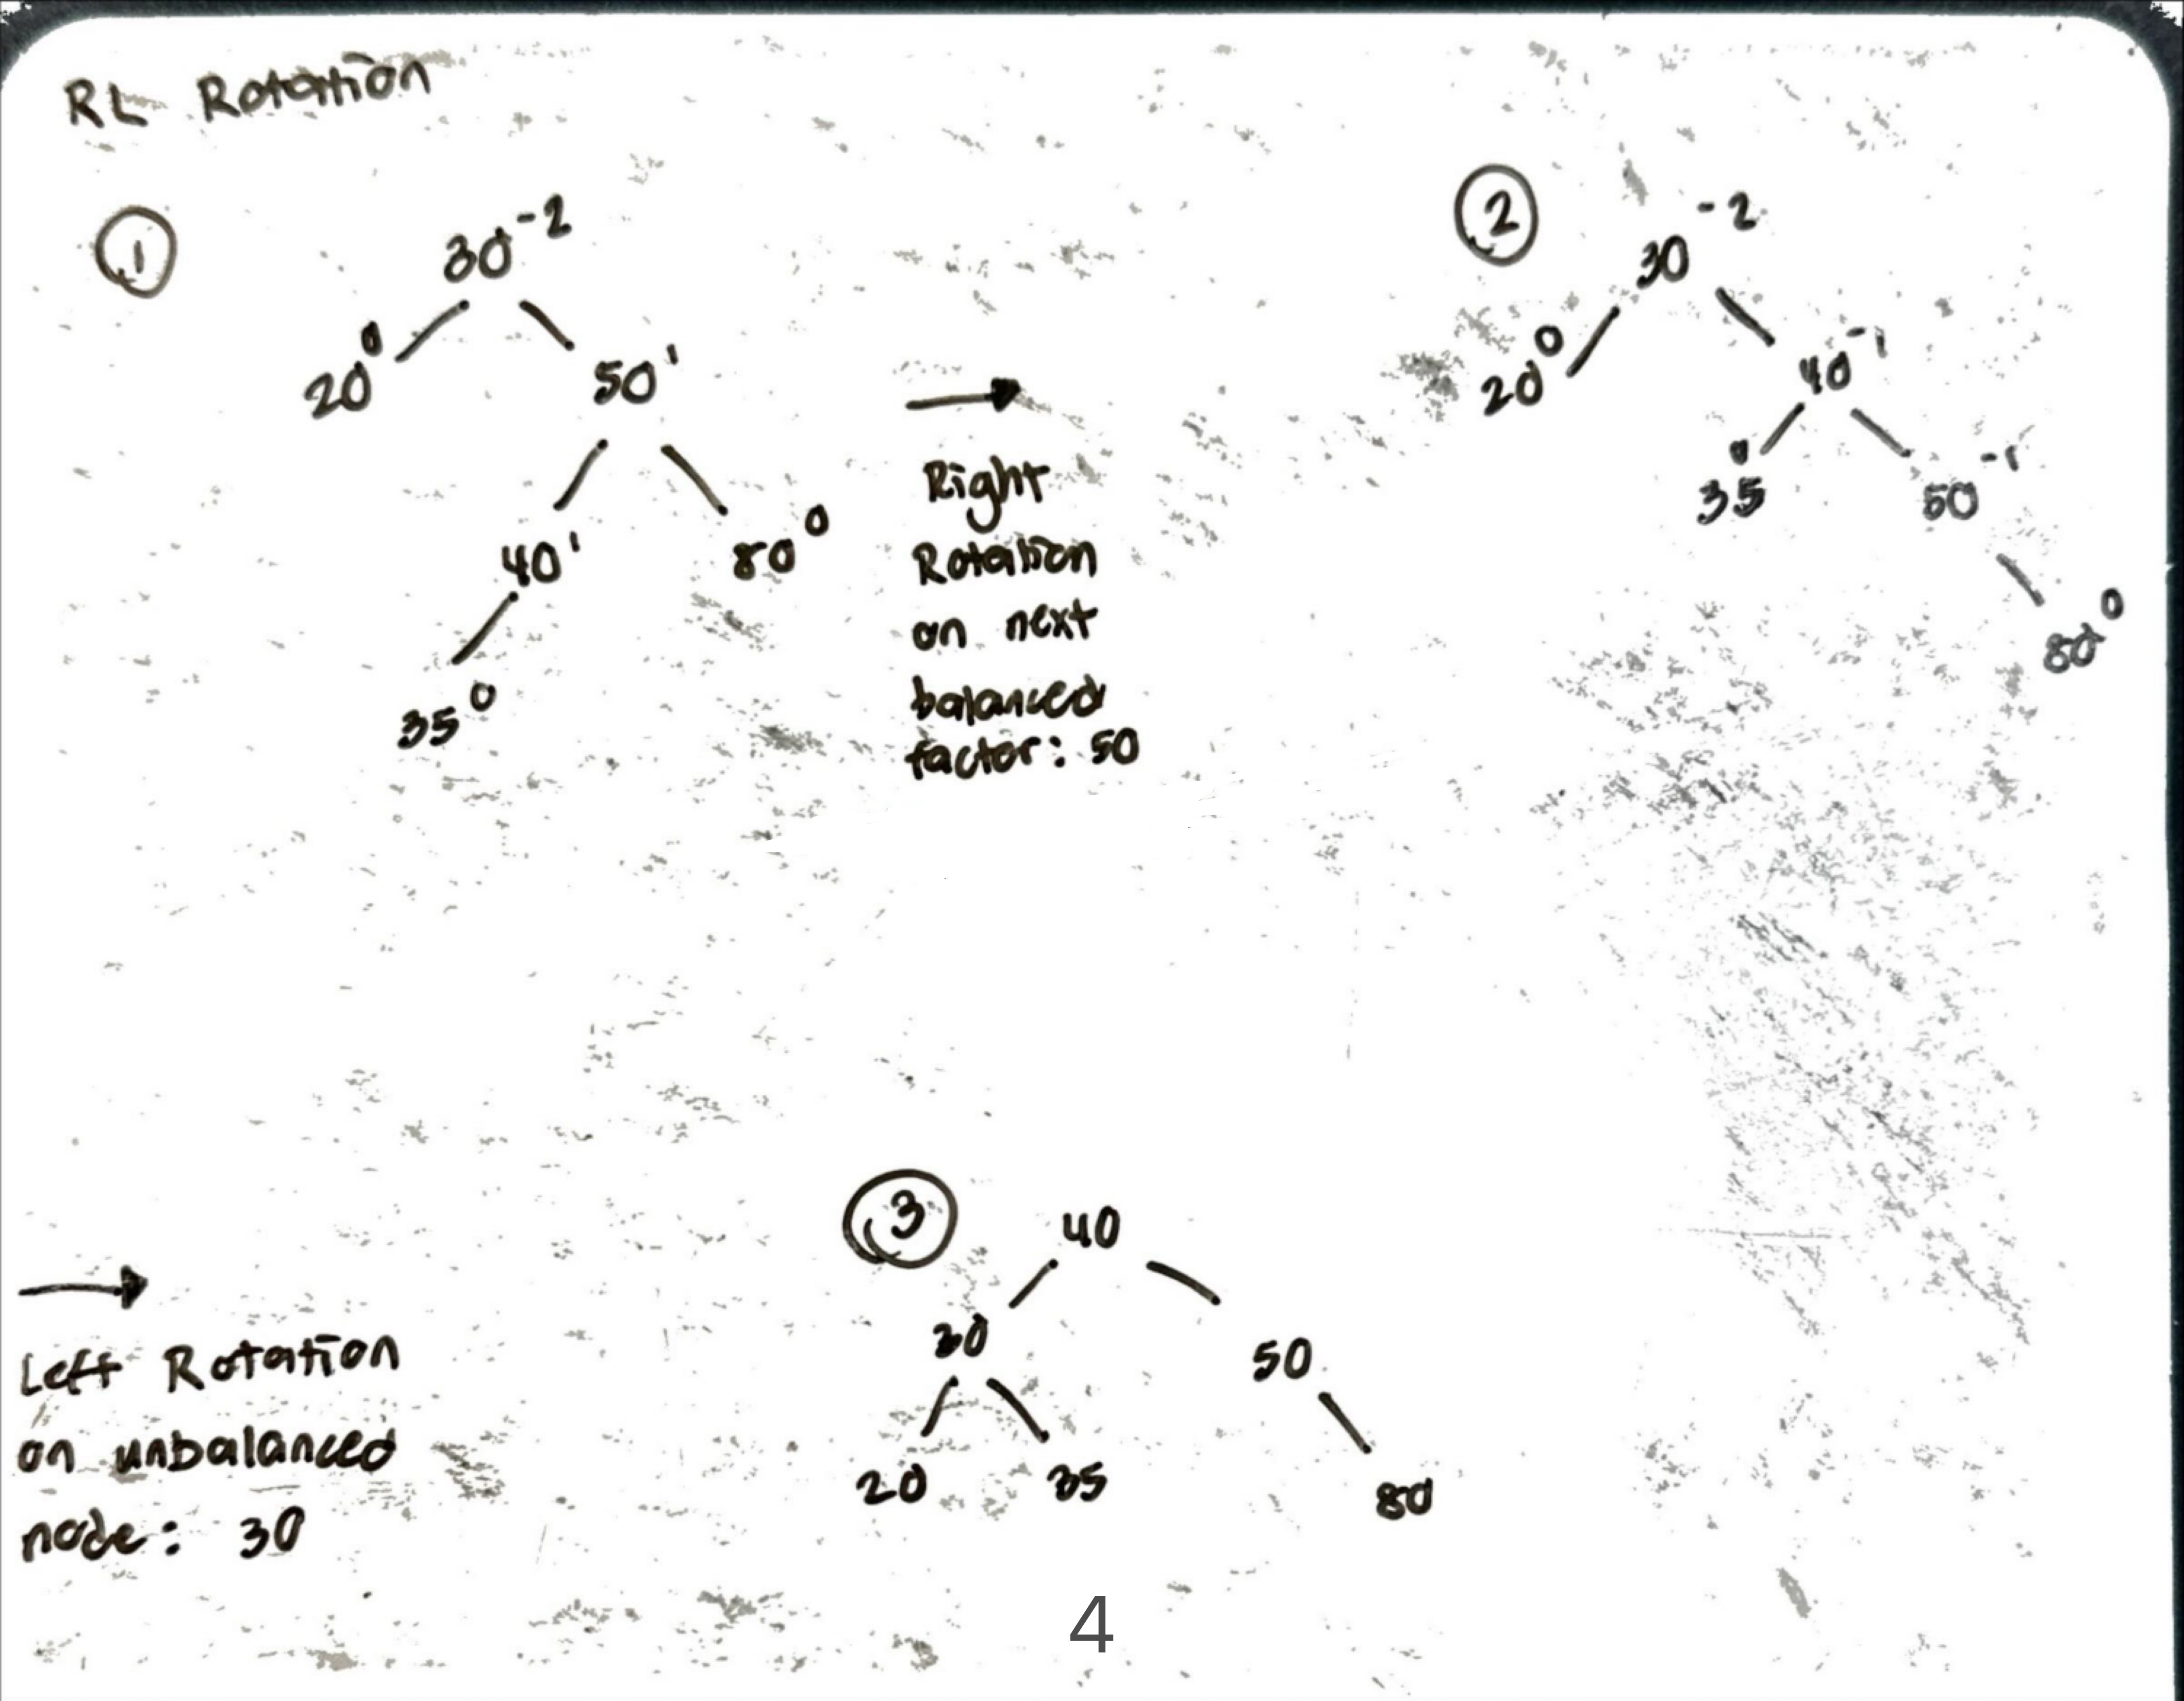 RL Rotation
1
30 -2
20 0
50 1
40 1
80 0
35 0
Right
Rotation
on next
balanced
factor: 50
2
30 -2
20 0
40 -1
35 0
50 -1
80 0
Left Rotation
on unbalanced
node: 30
3
40
30
50
20
35
80
4